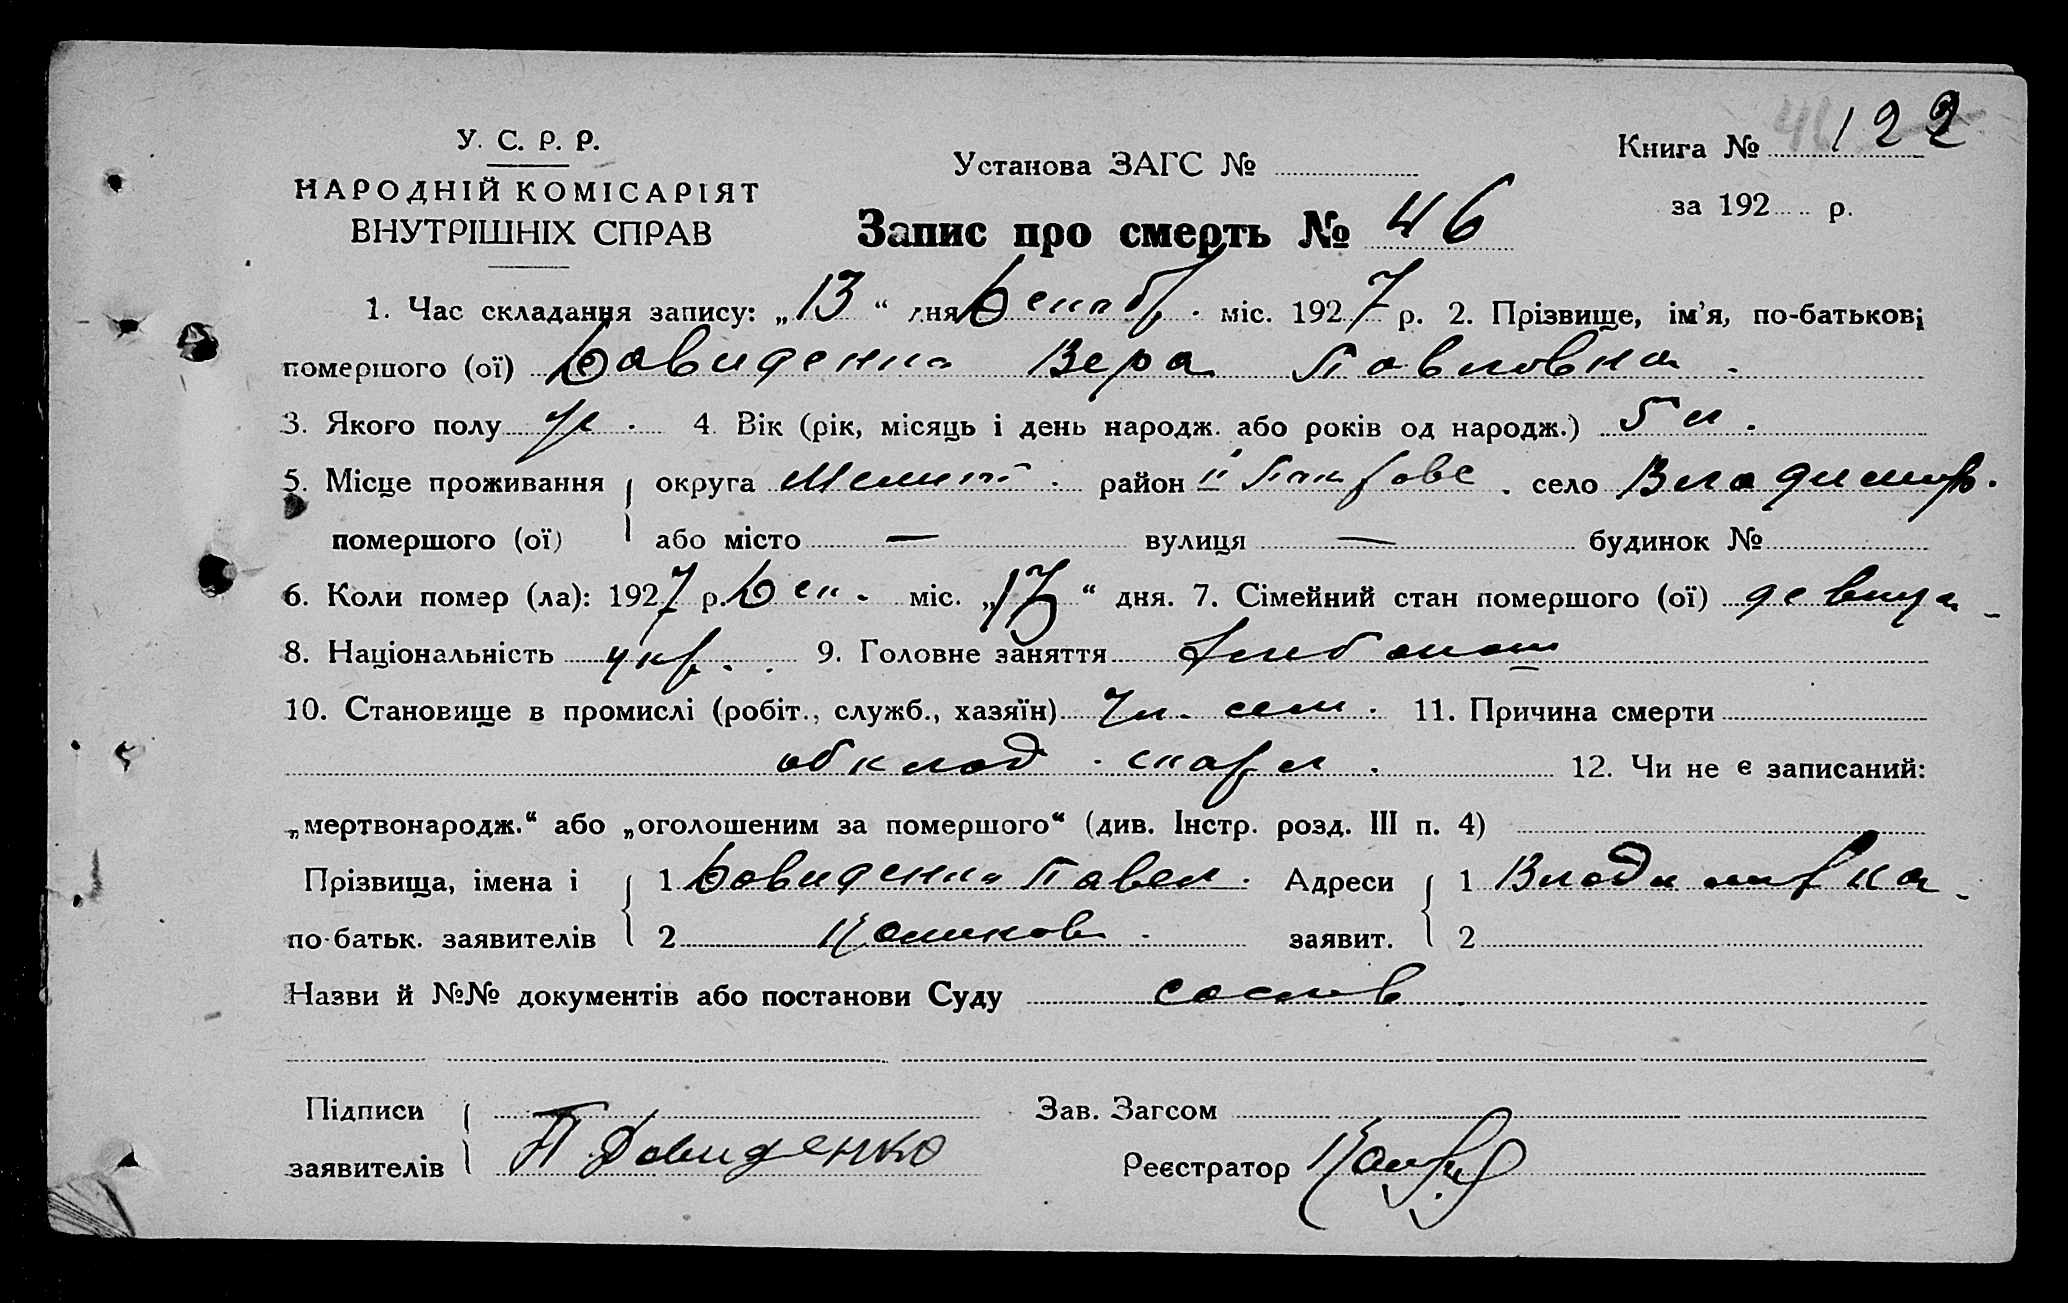 У. С. Р. Р.
НАРОДНІЙ КОМІСАРІЯТ
ВНУТРІШНІХ СПРАВ
Установа ЗАГС №
Книга № 122
за 192 р.
Запис про смерть № 46
1. Час складання запису: „13“ дня Декабр. міс. 1927 р. 2. Прізвище, ім'я, по-батькові
помершого (ої) Довиденко Вера Павловна.
3. Якого полу ж. 4. Вік (рік, місяць і день народж. або років од народж.) 5 л.
5. Місце проживання округа Мелит. район село Владимир.
помершого (ої) або місто — вулиця — будинок №
6. Коли помер (ла): 1927 р. Дек. міс. „13“ дня. 7. Сімейний стан помершого (ої) девица
8. Національність укр. 9. Головне заняття хлебопаш
10. Становище в промислі (робіт., служб., хазяїн) Чл. сем. 11. Причина смерти
обклад. скарл. 12. Чи не є записаний:
„мертвонародж.“ або „оголошеним за помершого“ (див. Інстр. розд. III п. 4)
Прізвища, імена і 1 Довиденко Павел. Адреси 1 Владимировка
по-батьк. заявителів 2 заявит. 2
Назви й №№ документів або постанови Суду
Підписи Зав. Загсом
заявителів П Довиденко Реєстратор